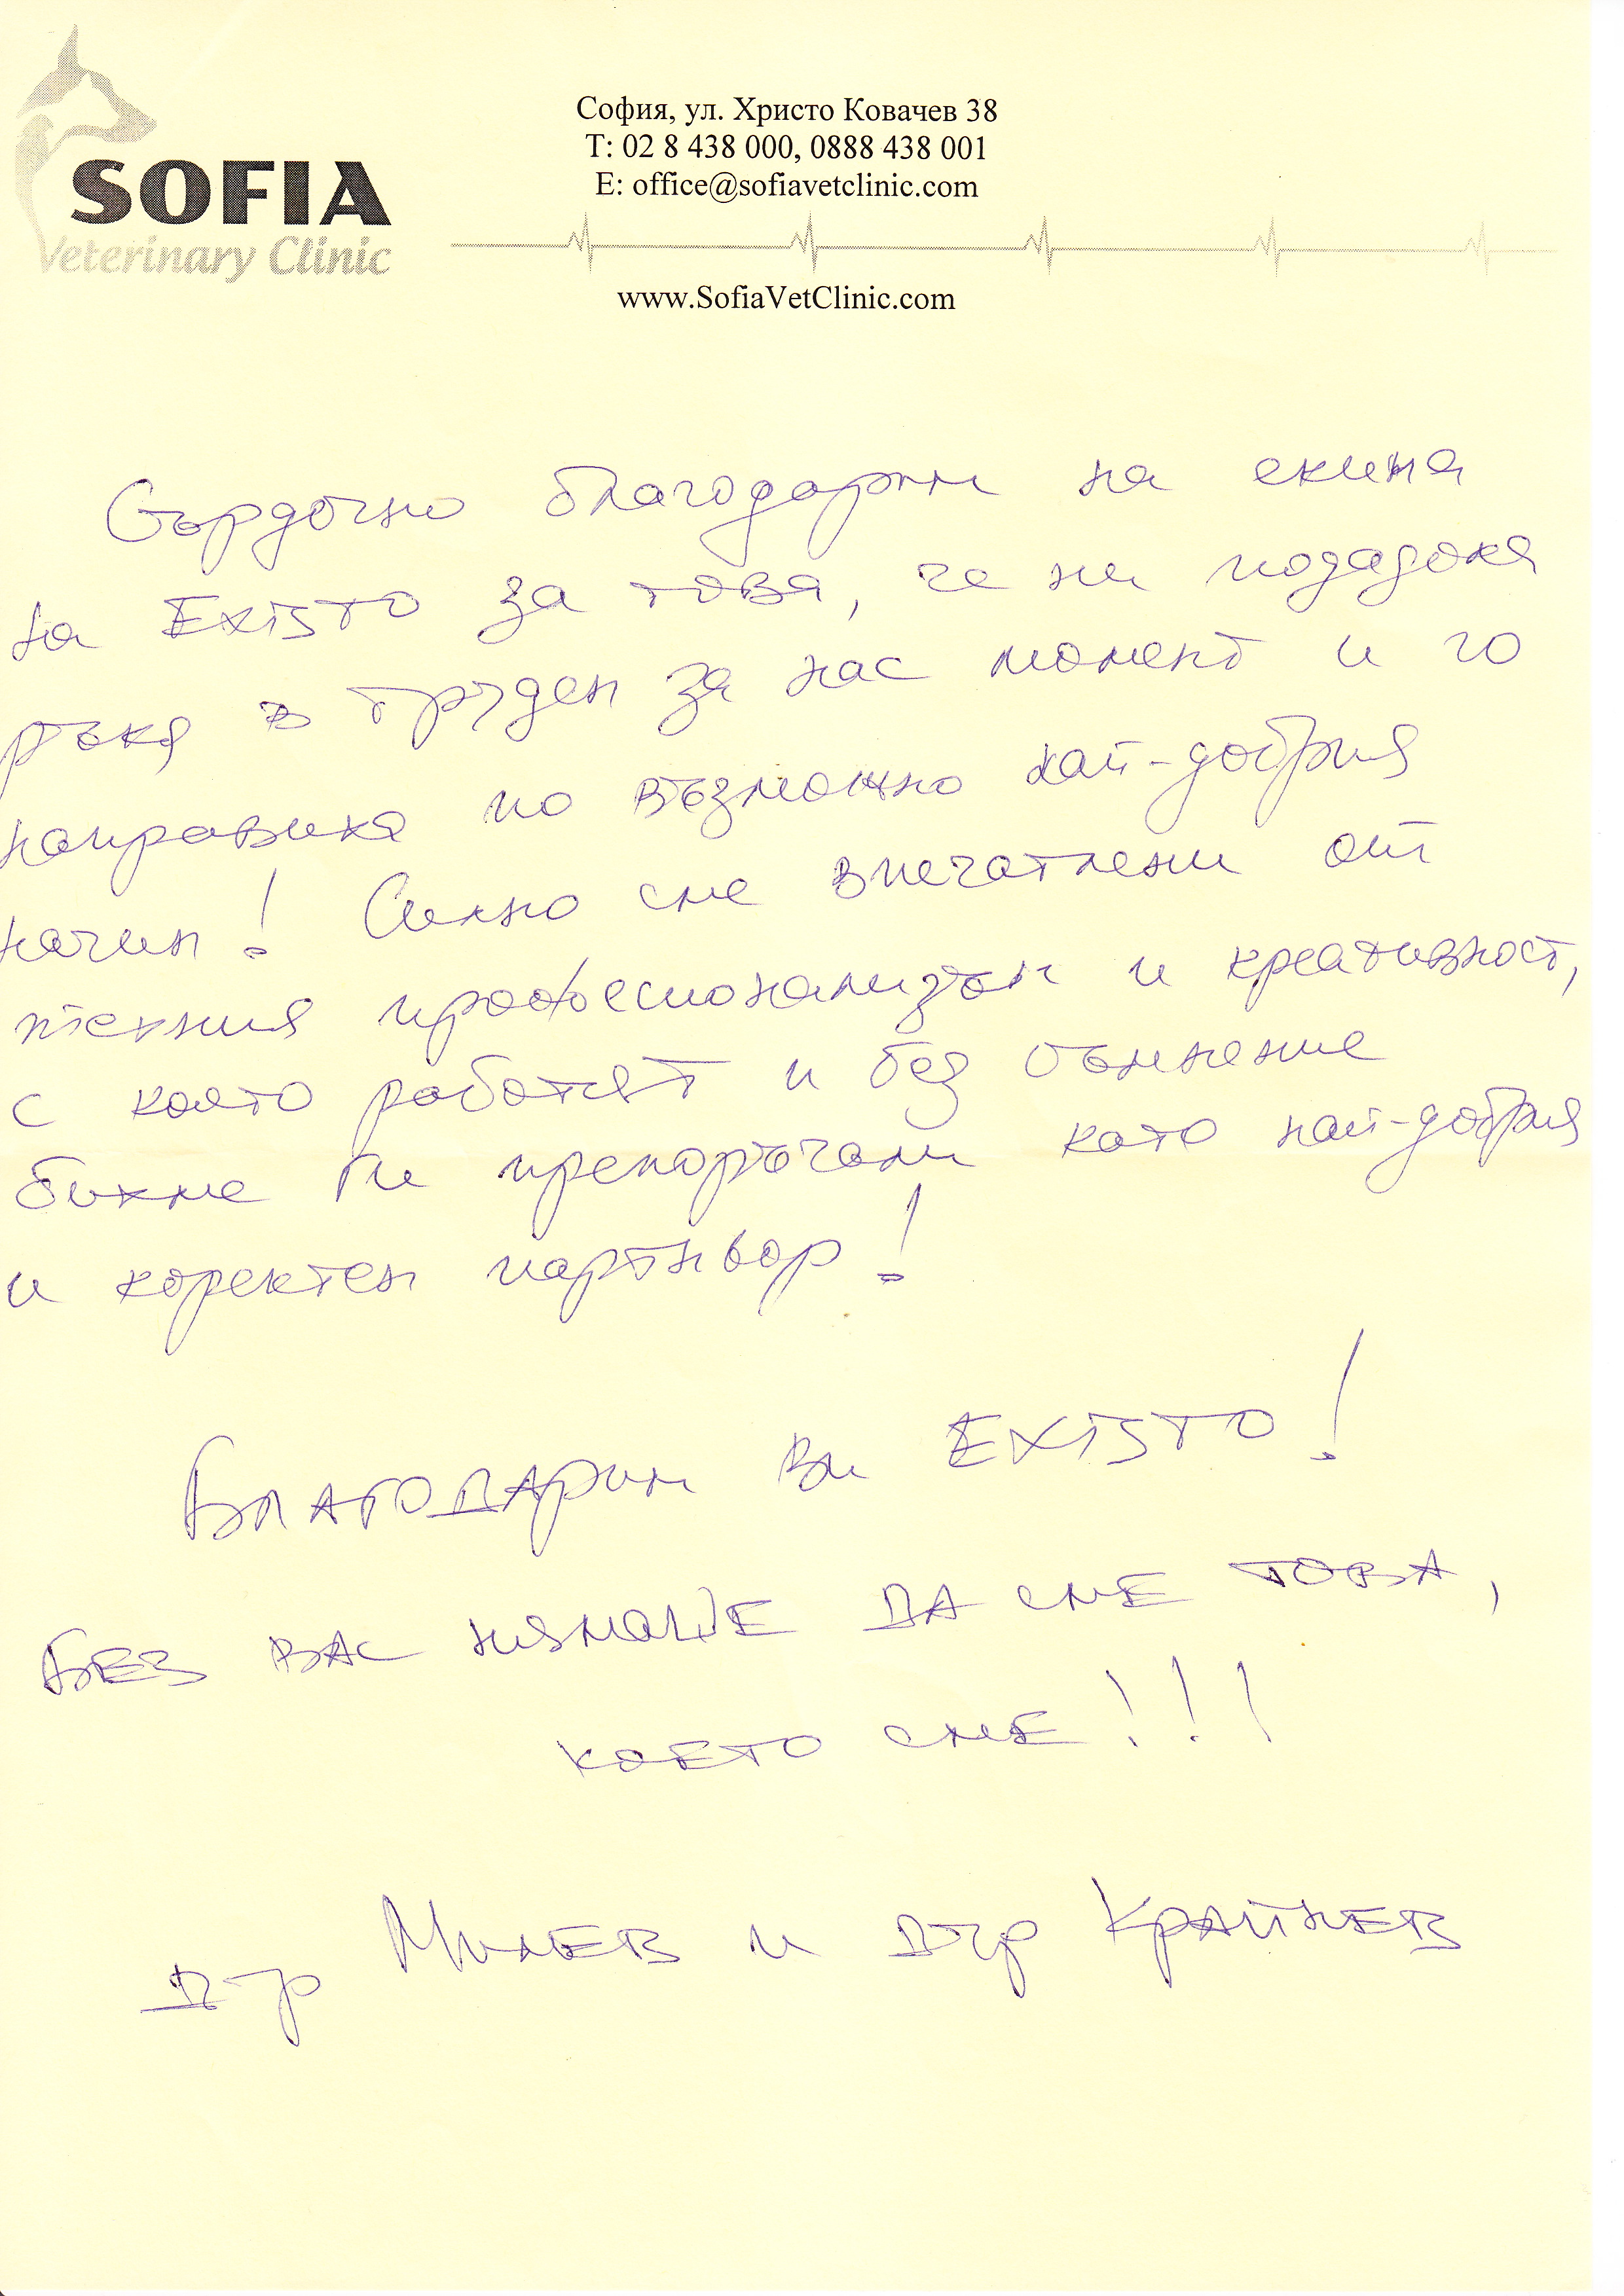 SOFIA
Veterinary Clinic
София, ул. Христо Ковачев 38
Т: 02 8 438 000, 0888 438 001
Е: office@sofiavetclinic.com
www.SofiaVetClinic.com
Сърдечно благодарим на екипа
на EXISTO за това, че ни подадоха
ръка в труден за нас момент и го
направиха по възможно най-добрия
начин! Силно сме впечатлени от
техния професионализъм и креативност,
с която работят и без съмнение
бихме ги препоръчали като най-добрия
и коректен партньор!
Благодарим Ви EXISTO!
БЕЗ ВАС НЯМАШЕ ДА СМЕ ТОВА,
КОЕТО СМЕ!!!
Д-р Милев и Д-р Крайнев